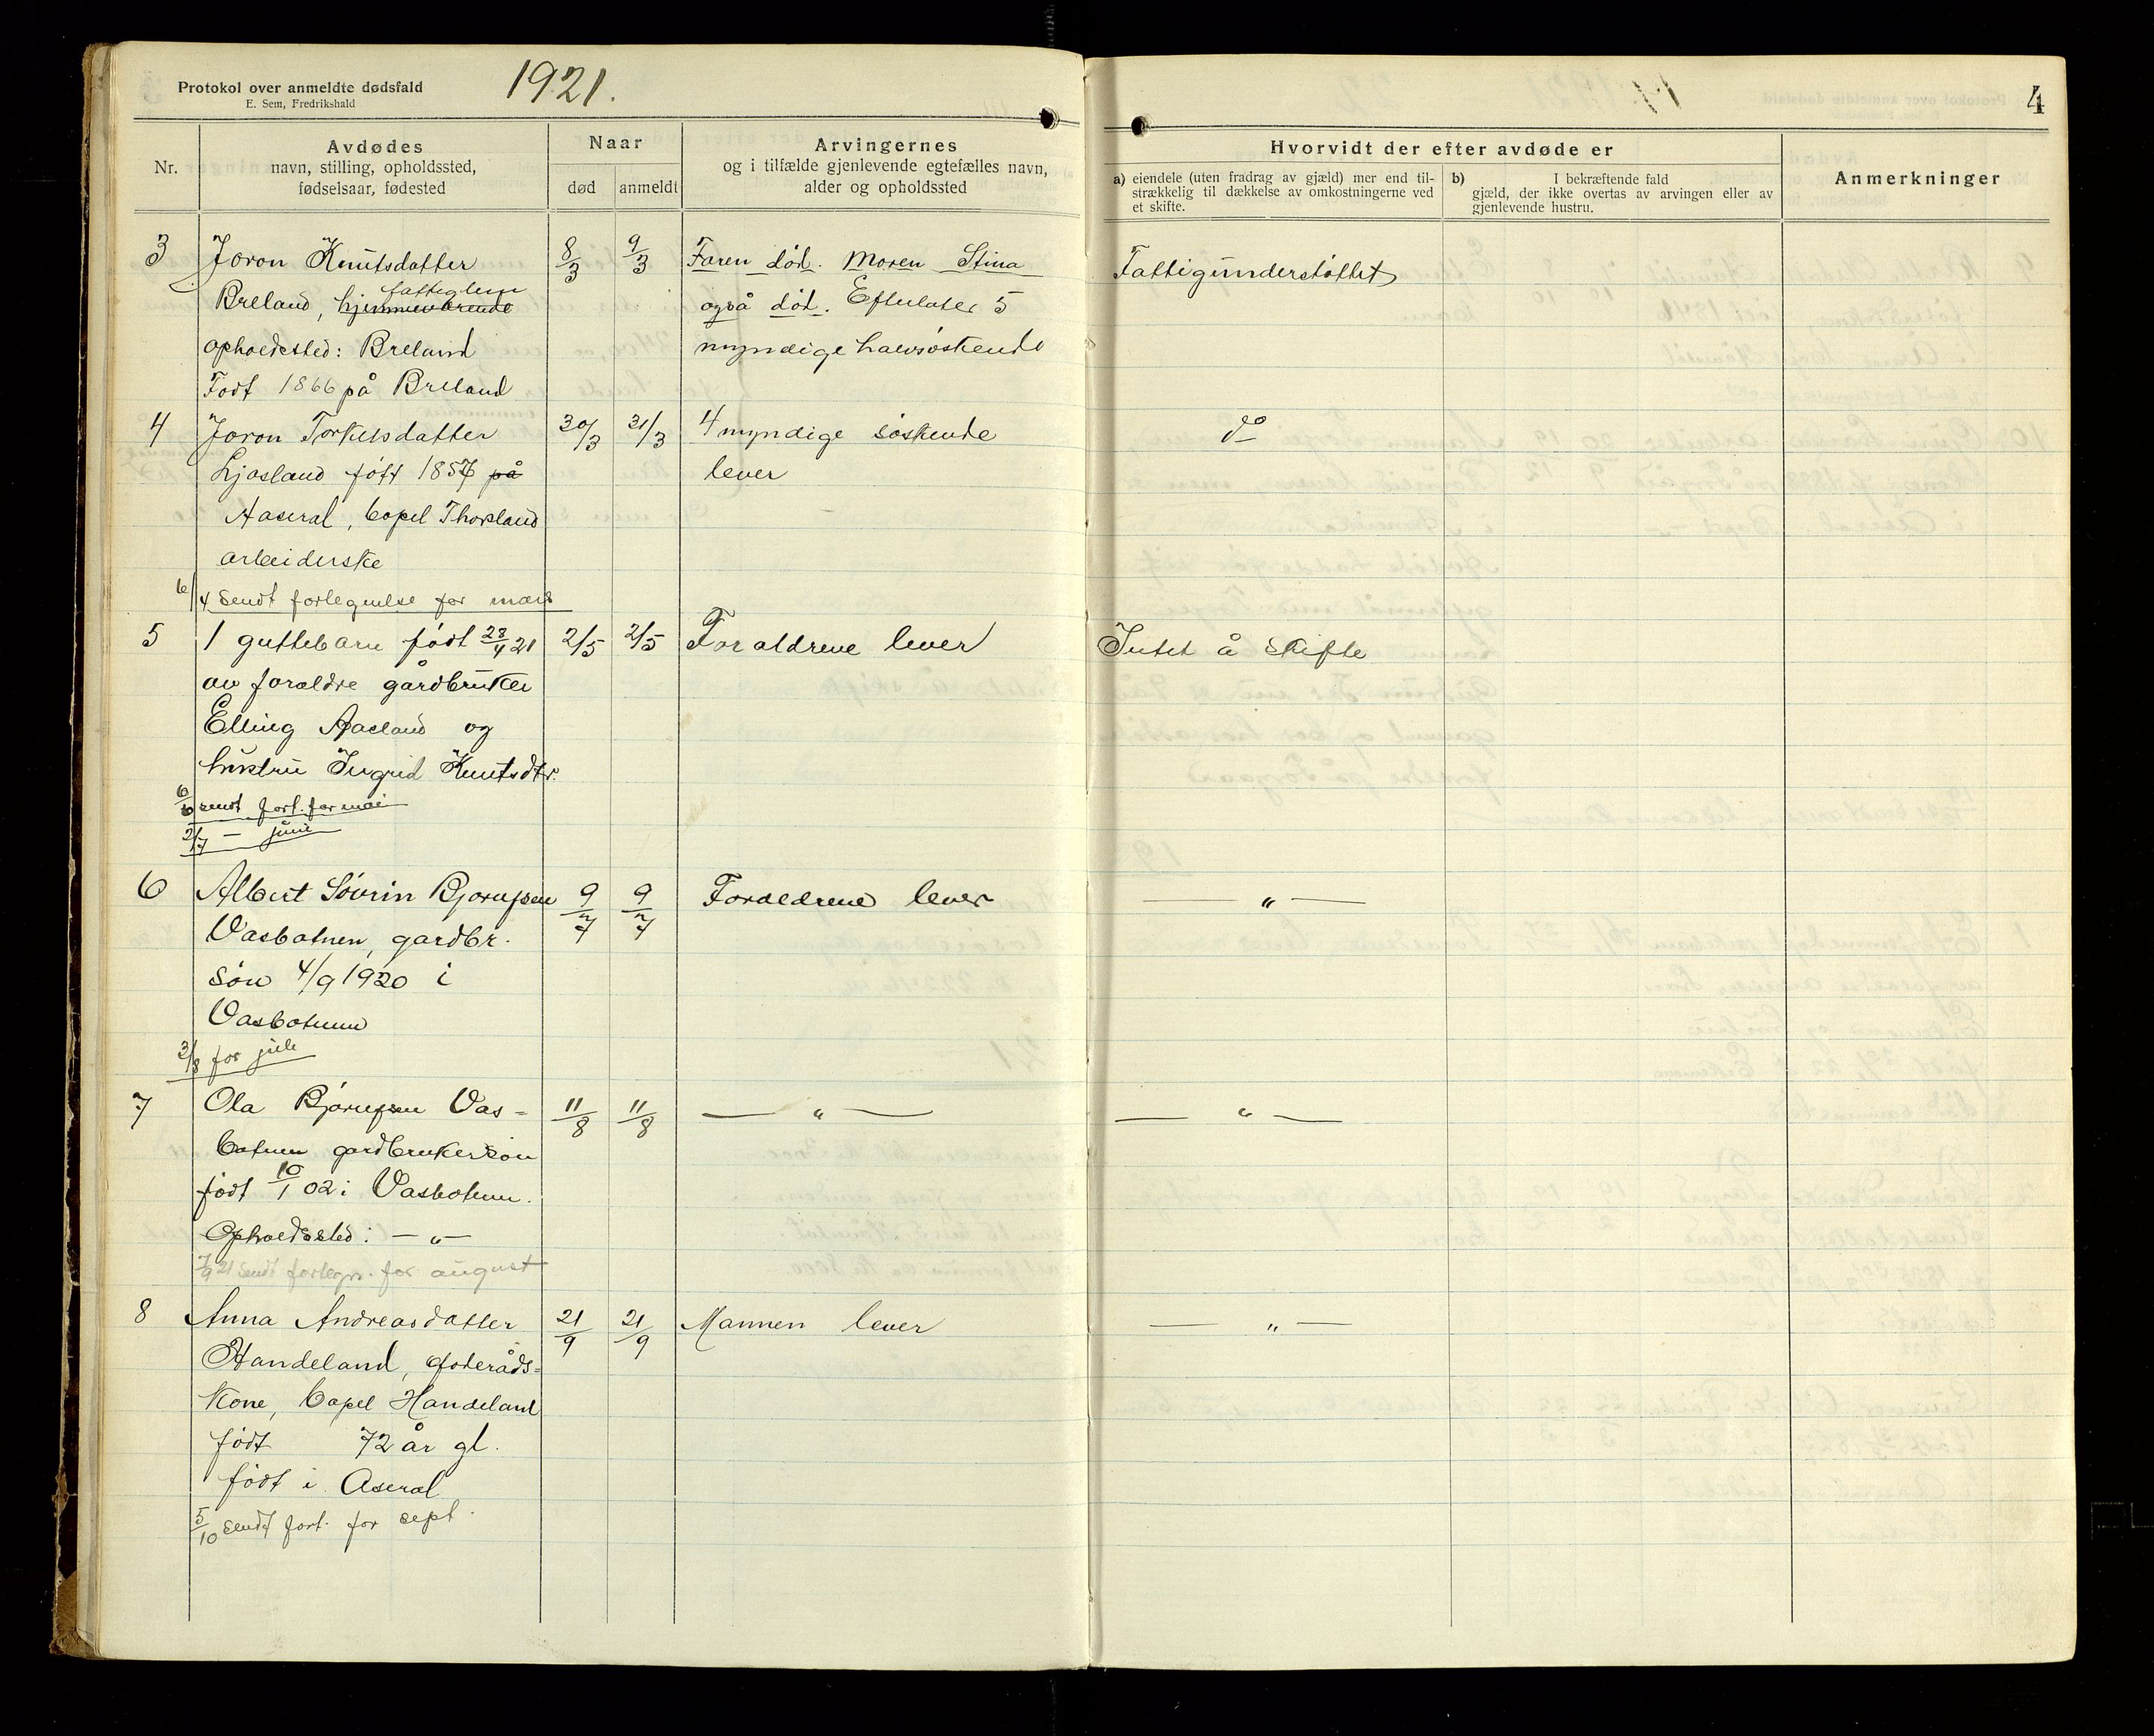 Protokol over anmeldte dødsfald
E. Sem, Fredrikshald
1921.
4
Nr.
Avdødes
navn, stilling, opholdssted,
fødselsaar, fødested
Naar
død
anmeldt
Arvingernes
og i tilfælde gjenlevende egtefælles navn,
alder og opholdssted
Hvorvidt der efter avdøde er
a) eiendele (uten fradrag av gjæld) mer end til-
strækkelig til dækkelse av omkostningerne ved
et skifte.
b) I bekræftende fald
gjæld, der ikke overtas av arvingen eller av
gjenlevende hustru.
Anmerkninger
3 Joron Knutsdatter 8/3 9/3 Faren död. Moren Stina Fattigunderstöttet
fattiglem
Breland, hjemmeværende også död. Efterlater 5
opholdssted: Breland myndige halvsöskende
Født 1866 på Breland
4 Joron Torkelsdatter 30/3 31/3 4 myndige söskende do
Ljosland född 1857 på lever
Aaseral, bopel Thorsland
arbeiderske
6/4 sendt fortegnelse for mars
5 1 guttebarn född 28/4 21 2/5 2/5 Foraldrene lever Intet å skifte
av foraldre gårdbruker
Elling Aasland og
hustru Ingrid Knutsdtr.
6/6 sendt fort. for mai
2/7 — juni
6 Albert Sövrin Bjornsen 9/7 9/7 Foraldrene lever — „ —
Vasbotnen, gardbr.
sön 4/9 1920 i
Vasbotnen
3/8 for juli
7 Ola Björnsen Vas- 11/8 11/8 — „ — — „ —
botnen gardbrukersön
född 10/1 02 i Vasbotnen.
Opholdssted: — „ —
7/9 21 sendt fortegn. for august
8 Anna Andreasdatter 21/9 21/9 Mannen lever — „ —
Handeland, foderåds-
kone, bopel Handeland
född 72 år gl.
född i Aseral
5/10 sendt fort. for sept.